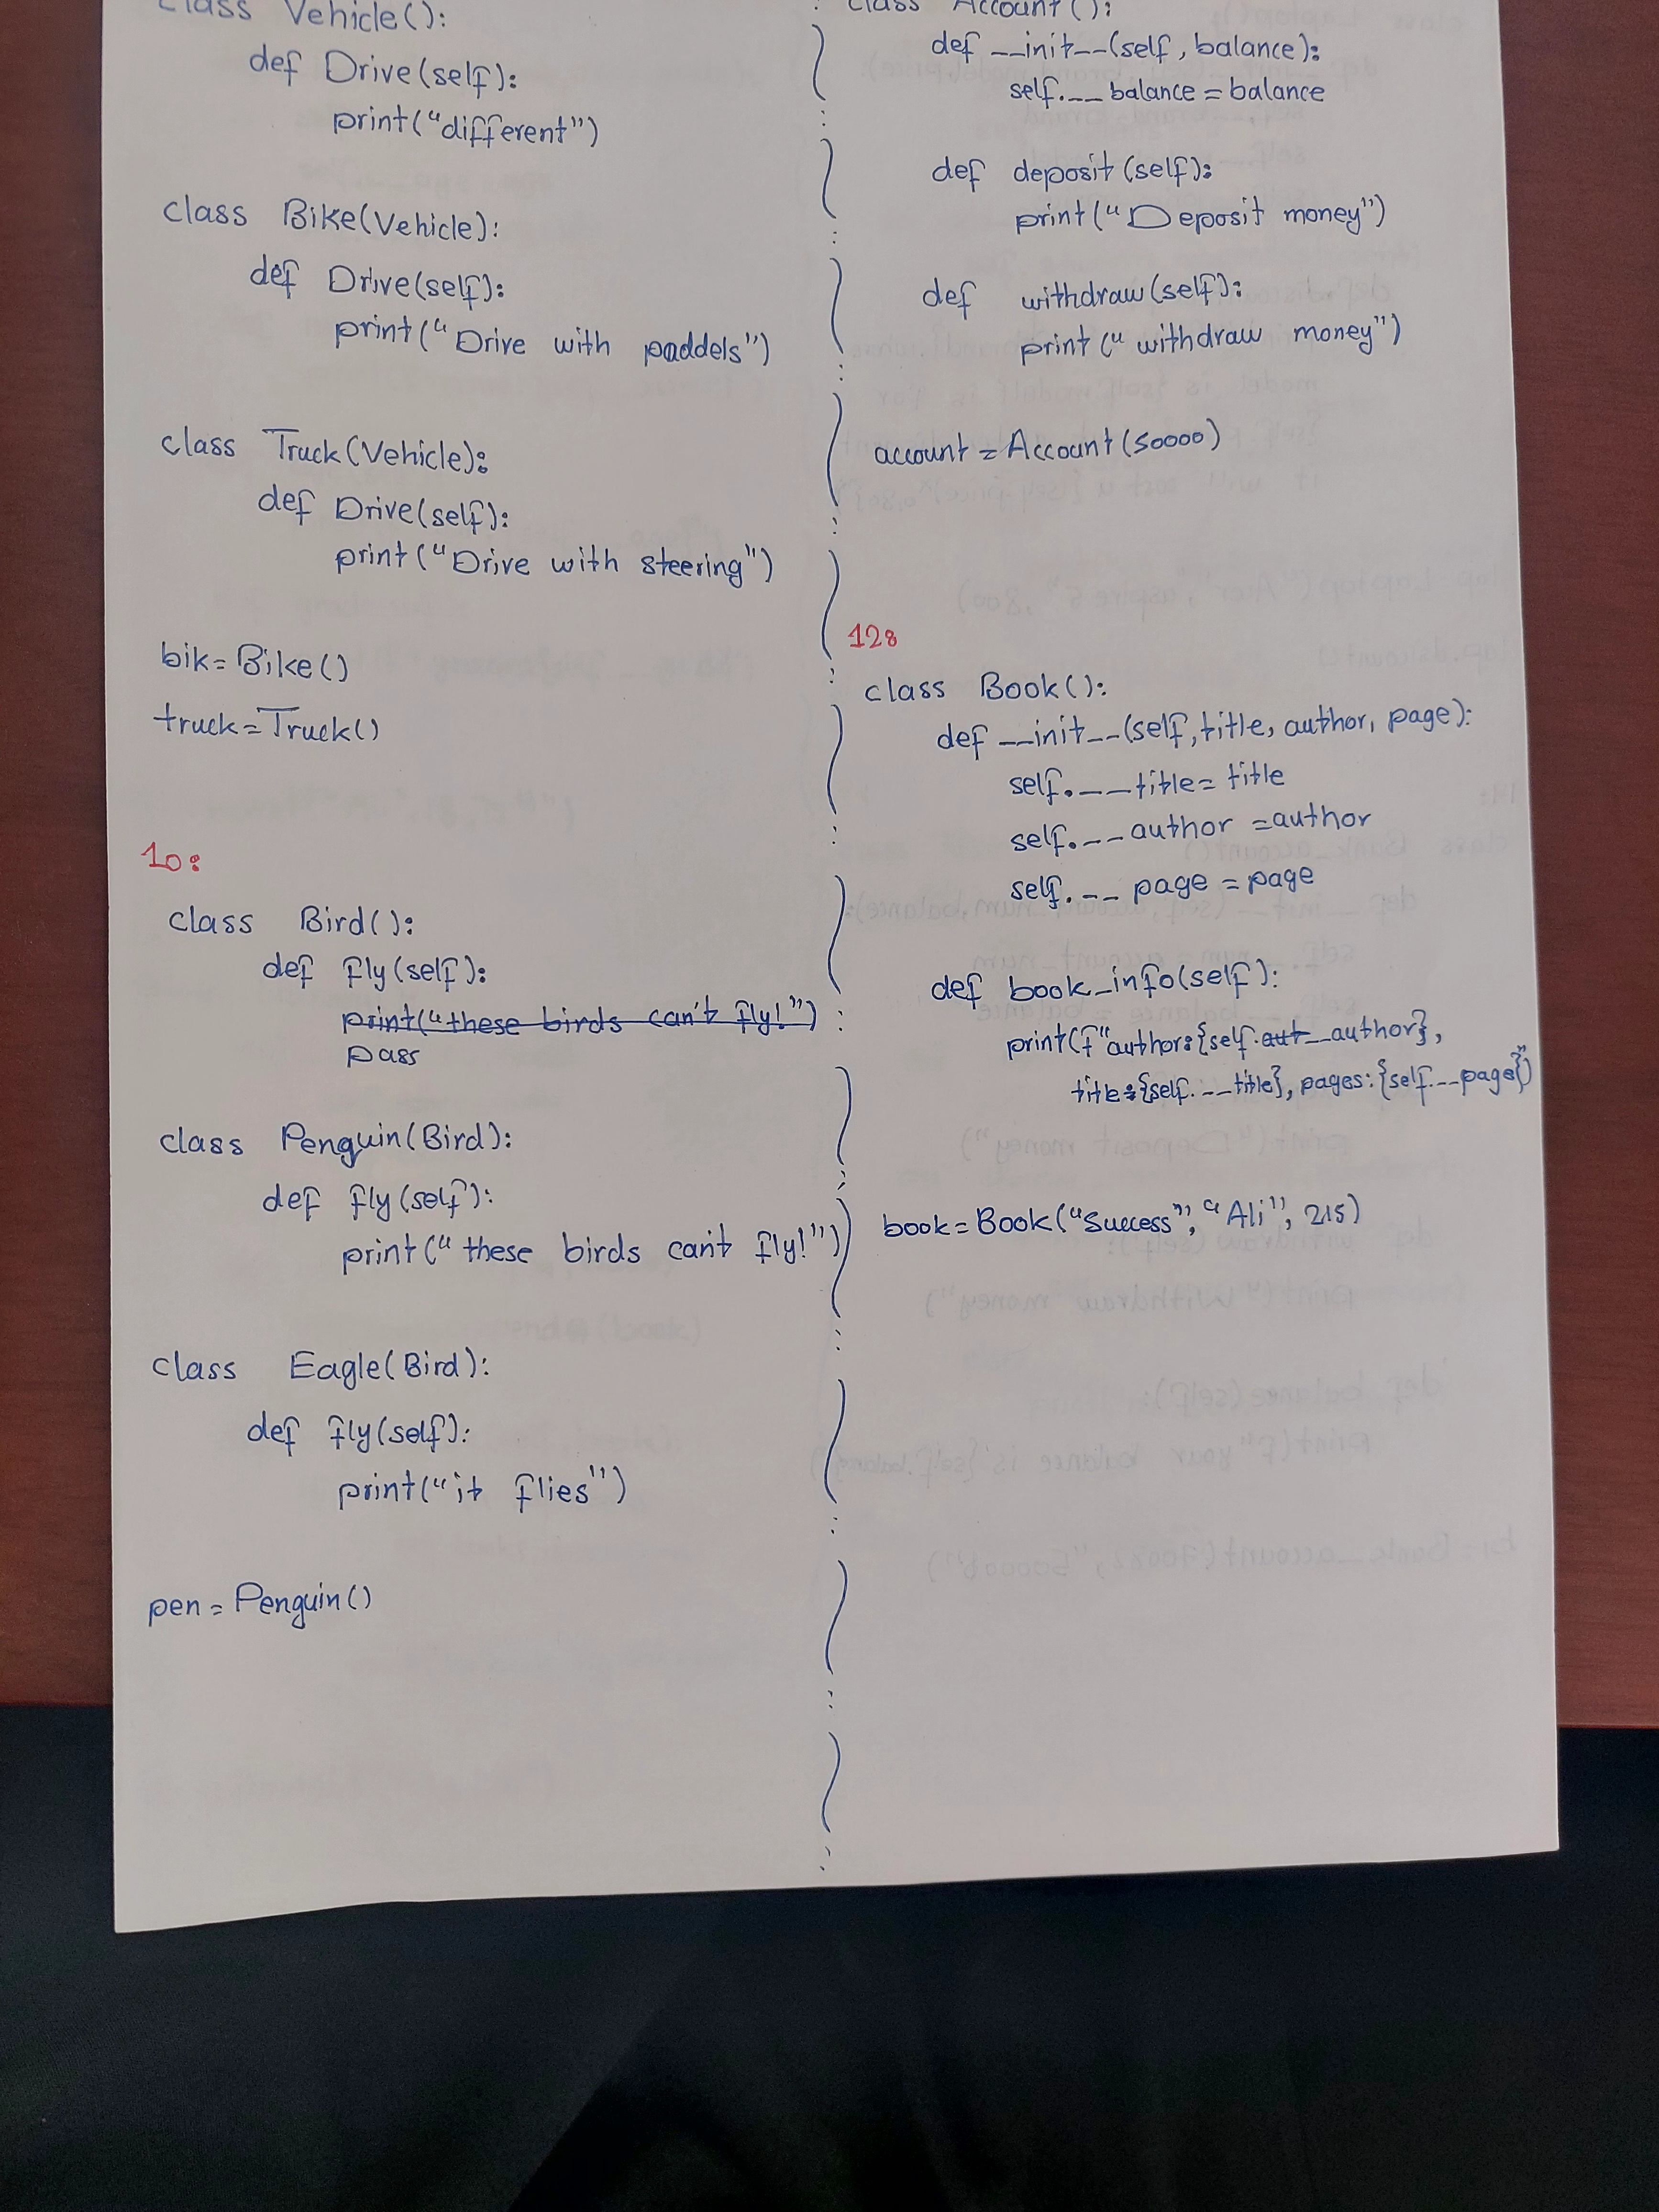 class Vehicle():
def Drive(self):
print("different")
class Bike(Vehicle):
def Drive(self):
print("Drive with paddels")
class Truck(Vehicle):
def Drive(self):
print("Drive with steering")
bik=Bike()
truck=Truck()
10:
class Bird():
def fly(self):
print("these birds can't fly!")
pass
class Penguin(Bird):
def fly(self):
print("these birds can't fly!")
class Eagle(Bird):
def fly(self):
print("it flies")
pen=Penguin()
class Account():
def __init__(self, balance):
self.__balance = balance
def deposit(self):
print("Deposit money")
def withdraw(self):
print("withdraw money")
account = Account(50000)
12:
class Book():
def __init__(self, title, author, page):
self.__title = title
self.__author = author
self.__page = page
def book_info(self):
print(f"author:{self.aut__author},
title:{self.__title}, pages:{self.__page}")
book=Book("Success", "Ali", 215)